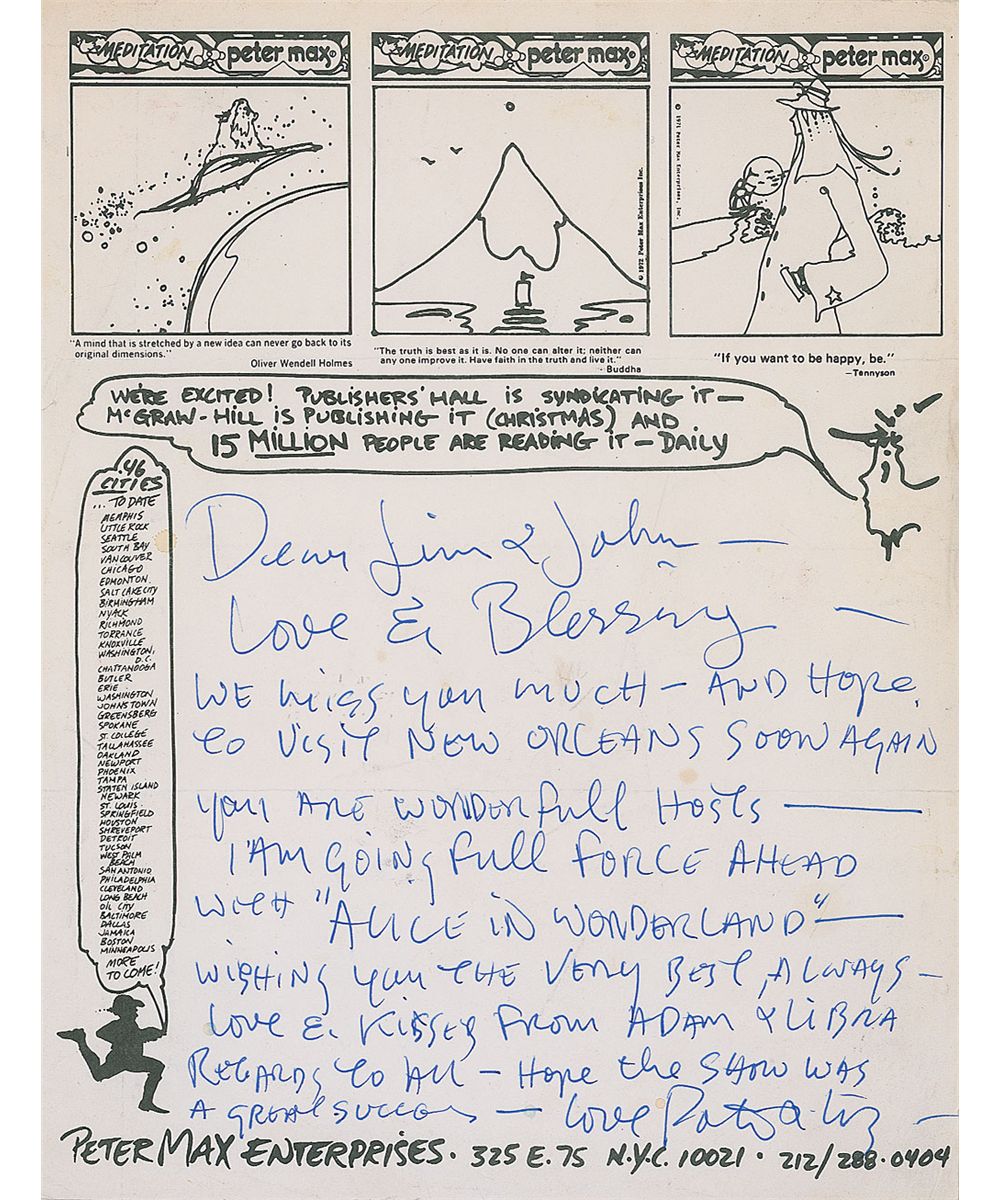 MEDITATION peter max®
MEDITATION peter max®
MEDITATION peter max®
"A mind that is stretched by a new idea can never go back to its
original dimensions."
Oliver Wendell Holmes
© 1972 Peter Max Enterprises Inc.
"The truth is best as it is. No one can alter it; neither can
any one improve it. Have faith in the truth and live it."
- Buddha
© 1971 Peter Max Enterprises, Inc.
"If you want to be happy, be."
—Tennyson
WE'RE EXCITED! PUBLISHERS' HALL IS SYNDICATING IT —
McGRAW-HILL IS PUBLISHING IT (CHRISTMAS) AND
15 MILLION PEOPLE ARE READING IT — DAILY
46
CITIES
... TO DATE
MEMPHIS
LITTLE ROCK
SEATTLE
SOUTH BAY
VANCOUVER
CHICAGO
EDMONTON
SALT LAKE CITY
BIRMINGHAM
NYACK
RICHMOND
TORRANCE
KNOXVILLE
WASHINGTON,
D.C.
CHATTANOOGA
BUTLER
ERIE
WASHINGTON,
JOHNSTOWN
GREENSBERG
SPOKANE
ST. COLLEGE
TALLAHASSEE
OAKLAND
NEWPORT
PHOENIX
TAMPA
STATEN ISLAND
NEWARK
ST. LOUIS
SPRINGFIELD
HOUSTON
SHREVEPORT
DETROIT
TUCSON
WEST PALM
BEACH
SAN ANTONIO
PHILADELPHIA
CLEVELAND
LONG BEACH
OIL CITY
BALTIMORE
DALLAS
JAMAICA
BOSTON
MINNEAPOLIS
MORE
TO COME!
Dear Jim & John —
Love & Blessing —
WE MISS you MUCH — AND HOPE
to VISIT NEW ORLEANS SOON AGAIN
you ARE WONDERfull HOSTS —
I'AM GOING full FORCE AHEAD
WITH "ALICE IN WONDERLAND" —
WISHING you THE VERY BEST, ALWAYS —
Love & KISSES FROM ADAM & LIBRA
REGARDS to All — HOPE the SHOW WAS
A GREAT SUCCESS — Love &
PETER MAX ENTERPRISES · 325 E. 75 N.Y.C. 10021 · 212/288·0404